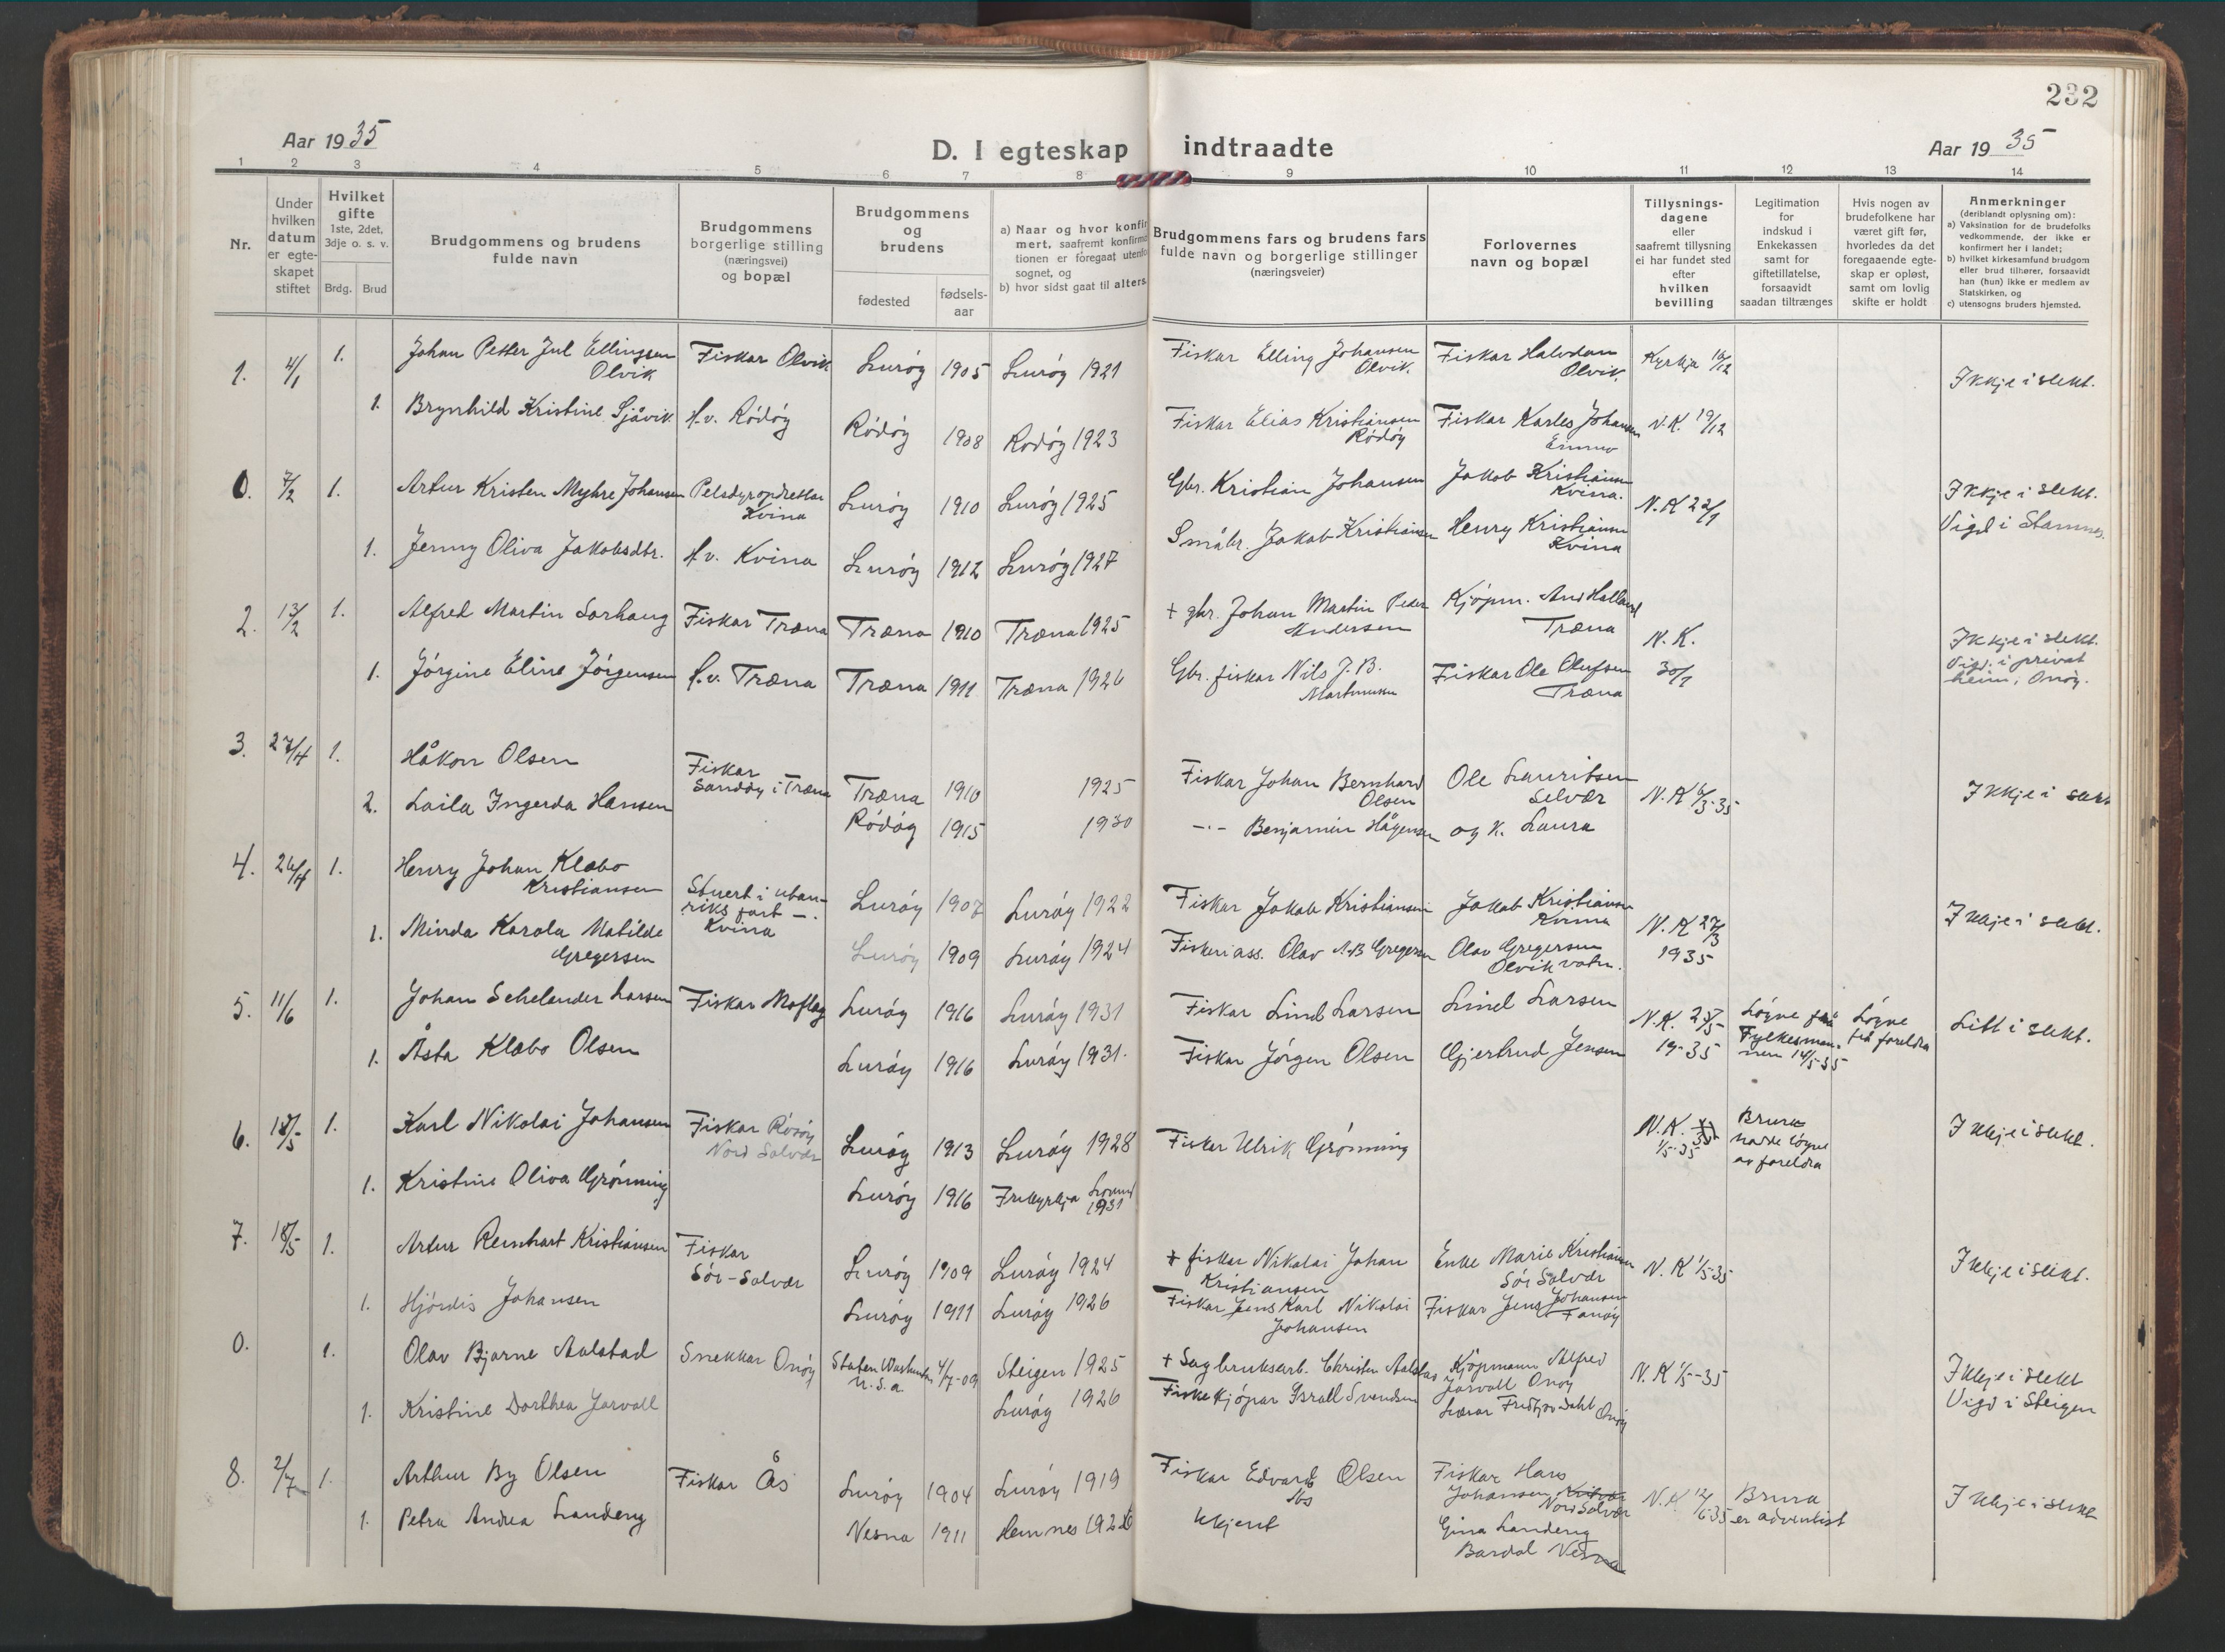 232
Aar 1935
D. I egteskap indtraadte
Aar 1935
1 2 3 4 5 6 7 8 9 10 11 12 13 14
Nr.
Under
hvilken
datum
er egte-
skapet
stiftet
Hvilket
gifte
1ste, 2det,
3dje o. s. v.
Brdg. Brud
Brudgommens og brudens
fulde navn
Brudgommens
borgerlige stilling
(næringsvei)
og bopæl
Brudgommens
og
brudens
fødested
fødsels-
aar
a) Naar og hvor konfir
mert, saafremt konfirma
tionen er foregaat utenfo
sognet, og
b) hvor sidst gaat til alters.
Brudgommens fars og brudens fars
fulde navn og borgerlige stillinger
(næringsveier)
Forlovernes
navn og bopæl
Tillysnings-
dagene
eller
saafremt tillysning
ei har fundet sted
efter
hvilken
bevilling
Legitimation
for
indskud i
Enkekassen
samt for
giftetillatelse,
forsaavidt
saadan tiltrænges
Hvis nogen av
brudefolkene har
været gift før,
hvorledes da det
foregaaende egte-
skap er opløst,
samt om lovlig
skifte er holdt
Anmerkninger
(deriblandt oplysning om):
a) Vaksination for de brudefolks
vedkommende, der ikke er
konfirmert her i landet;
b) hvilket kirkesamfund brudgom
eller brud tilhører, forsaavidt
han (hun) ikke er medlem av
Statskirken, og
c) utensogns bruders hjemsted.
1. 4/1 1. Johan Petter Jul Ellingsen Fiskar Olvik Lurøy 1905 Lurøy 1921 Fiskar Elling Johansen Fiskar Halvdan Kyrkja 16/12
Olvik Olvik. Olvik. Ikkje i slekt.
1. Brynhild Kristine Sjåvik. H.v. Rödöy Rödöy 1908 Rodöy 1923 Fiskar Elias Kristiansen Fiskar Karles Johansen N.K. 19/12
Rödöy
0. 7/2 1. Artur Kristen Myhre Johansen Pelsdyropdrettar Lurøy 1910 Lurøy 1925 Gbr. Kristian Johansen Jakob Kristiansen N.K 22/1 Ikkje i slekt.
Kvina Kvina. Vigd i Stamnes.
1. Jenny Oliva Jakobsdtr. H.v. Kvina Lurøy 1912 Lurøy 1927 Småbr. Jakob Kristiansen Henry Kristiansen
Kvina
2. 13/2 1. Alfred Martin Sorhaug Fiskar Træna Træna 1910 Træna 1925 + gbr. Johan Martin Peder Kjöpm. And Halland N.K.
Andersen Træna Ikkje i slekt.
1. Jörgine Eline Jörgensen H.v. Træna Træna 1911 Træna 1926 Gbr. fiskar Nils J.B. Fiskar Ole Olufsen 30/1 Vigd. i privat
Martinussen Træna heim, Onöy.
3. 27/4 1. Håkon Olsen Fiskar Træna 1910 1925 Fiskar Johan Bernhard Ole Lauritsen N.K 6/3-35 Ikkje i slekt
Sandöy i Træna Olsen Selvær
2. Laila Ingerda Hansen Rödöy 1915 1930 -.- Benjamin Hågensen og K. Laura
4. 26/4 1. Henry Johan Klæbo Stuert i utan- Lurøy 1907 Lurøy 1922 Fiskar Jakob Kristiansen Jakob Kristiansen N.K 27/3 Ikkje i slekt.
Kristiansen riks fart -. Kvina
1. Minda Karola Matilde Kvina Lurøy 1909 Lurøy 1924 Fiskeriass. Olav A.B Gregersen Olav Gregersen 1935
Gregersen Olvikvatn.
5. 11/6 1. Johan Schelander Larsen Fiskar Moflag Lurøy 1916 Lurøy 1931 Fiskar Lind Larsen Lind Larsen N.K. 23/5 Löyve frå Löyve Litt i slekt.
1. Åsta Klæbo Olsen Lurøy 1916 Lurøy 1931. Fiskar Jörgen Olsen Gjertrud Jensen 19-35 Fylkesman- frå foreldra
nen 14/5-35
6. 18/5 1. Karl Nikolai Johansen Fiskar Lurøy 1913 Lurøy 1928 Fisker Ulrik Grönning N.K. Brura Ikkje i slekt.
Nord Solvær 1/5-35 hadde löyve
1. Kristine Oliva Grönning Lurøy 1916 Frikyrkja Lovund 1931 av foreldra
7. 18/5 1. Artur Reinhart Kristiansen Fiskar Lurøy 1909 Lurøy 1924 + fiskar Nikolai Johan Enke Marie Kristiansen N.K 1/5-35 Ikkje i slekt.
Sör-Solvær Kristiansen Sör Solvær
1. Hjördis Johansen Lurøy 1911 Lurøy 1926 Fiskar Jens Karl Nikolai Fiskar Jens Johansen
Johansen
0. 1. Olav Bjarne Aalstad Snekkar Onöy Staten Washington 4/7-09 Steigen 1925 + Sagbruksarb. Christen Aalstad Kjöpmann Alfred N.K 1/5-35 Ikkje i slekt
U.S.a. Jarvoll Onöy Vigd i Steigen
1. Kristine Dorthea Jarvoll Lurøy 1926 Fiskekjöpar Israel Svendsen Lærar Fredtjov Dahl Onöy
8. 2/7 1. Arthur By Olsen Fiskar Ås Lurøy 1904 Lurøy 1919 Fiskar Edvard Olsen Fiskar Hans
Johansen N.K 12/6 35 Brura Ikkje i slekt
Nord Solvær er adventist
1. Petra Andrea Landeng Nesna 1911 Hemnes 1926 Ukjent Gina Landeng
Bardal Nesna